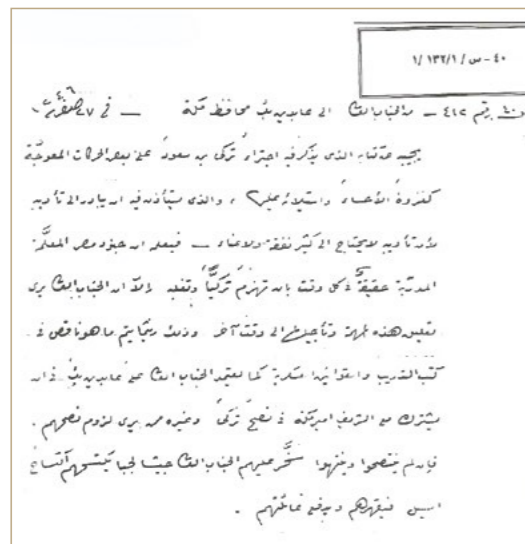 ٤٠ - س / ١٣٢/١ /١
رقم ٤١٢ - من الجناب العالي الى عابدين بك محافظ مكة - في ٢٧ صفر
يجيبه عن كتابه الذي يذكر فيه اجتراء تركي بن سعود على بعض الحركات المعوجّة
كغزوة الأحساء واستيلائه عليها، والذي يستأذن فيه ان يبادر الى تأديبه
لأن تأديبه لا يحتاج الى كثير نفقة ولا عناء - فيعلمه ان جنود مصر المعلّمة
المدرّبة حقيقةً في كل وقت بان تهزم تركيّاً وتغلبه إلاّ ان الجناب العالي يرى
تعليق هذه المهمة وتأجيلها الى وقت آخر وذلك ريثما يتم ما هو ناقص في
كتب التدريب والقوانين العسكرية كما يعتمد الجناب العالي على عابدين بك في ان
يشترك مع الشريف امير مكة في نصح تركي وغيره ممن يرى لزوم نصحهم.
فإن لم ينتصحوا وينتهوا سخّر عليهم الجناب العالي جيشا لجبا يكتسحهم اكتساح
السيل فيقهرهم ويدفع غائلتهم.